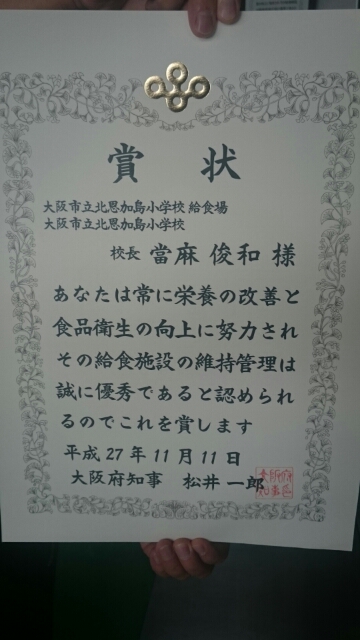 賞状
大阪市立北恩加島小学校 給食場
大阪市立北恩加島小学校
校長 當麻 俊和 様
あなたは常に栄養の改善と
食品衛生の向上に努力され
その給食施設の維持管理は
誠に優秀であると認められ
るのでこれを賞します
平成27年11月11日
大阪府知事 松井一郎